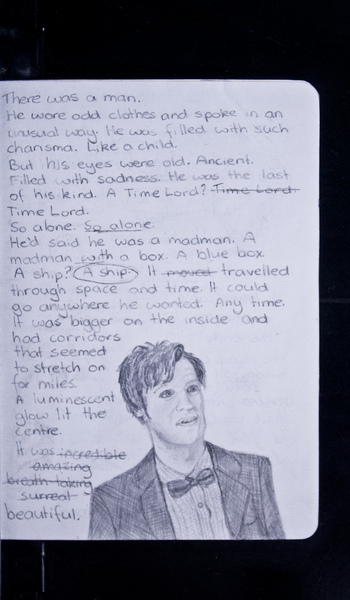 There was a man.
He wore odd clothes and spoke in an
unusual way. He was filled with such
charisma. Like a child.
But his eyes were old. Ancient.
Filled with sadness. He was the last
of his kind. A Time Lord? Time Lord.
Time Lord.
So alone. So alone.
He'd said he was a madman. A
madman with a box. A blue box.
A ship? A ship. It moved travelled
through space and time. It could
go anywhere he wanted. Any time.
It was bigger on the inside and
had corridors
that seemed
to stretch on
for miles.
A luminescent
glow lit the
centre.
It was incredible
amazing
breath taking
surreal
beautiful.